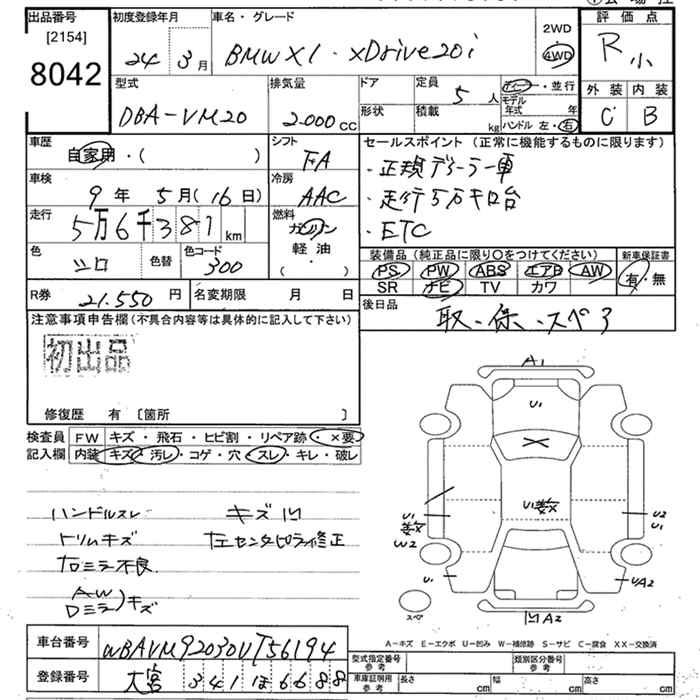 出品番号 初度登録年月 車名・グレード 2WD 評価点
[2154] 24年 3月 BMW X1・xDrive20i 4WD R 小
8042 型式 排気量 ドア 定員 5人 ディーラー・並行 外装 内装
DBA-VM20 2.000cc 形状 積載 kg モデル年式 年 C B
ハンドル 左・右
車歴 シフト セールスポイント(正常に機能するものに限ります)
自家用・( ) FA ・正規ディーラー車
車検 冷房 ・走行5万キロ台
9年 5月(16日) AAC ・ETC
走行 5万6千381km 燃料 ガソリン
色 シロ 色替 色コード 300 軽油 ( )
装備品(純正品に限り○をつけてください) 新車保証書
PS PW ABS エアB AW 有・無
SR ナビ TV カワ
R券 21.550円 名変期限 月 日 後日品
取・保・スペ3
注意事項申告欄(不具合内容等は具体的に記入して下さい)
初出品
修復歴 有 [箇所 ]
検査員 FW キズ・飛石・ヒビ割・リペア跡・×要
記入欄 内装 キズ・汚レ・コゲ・穴・スレ・キレ・破レ
ハンドルスレ キズ凹
トリムキズ 左センタピラー修正
右ミラー不良
AW
Dミラー)キズ
A1
U1
U1
U1
W2
U2
U1
U1
UA2
凹A2
スペア
A-キズ E-エクボ U-凹み W-補修跡 S-サビ C-腐食 XX-交換済
車台番号 WBAVM92030VT56194
登録番号 大宮 341 ほ 6688
型式指定番号 参考 類別区分番号 参考
車庫証明用 参考 長さ cm 幅 cm 高さ cm